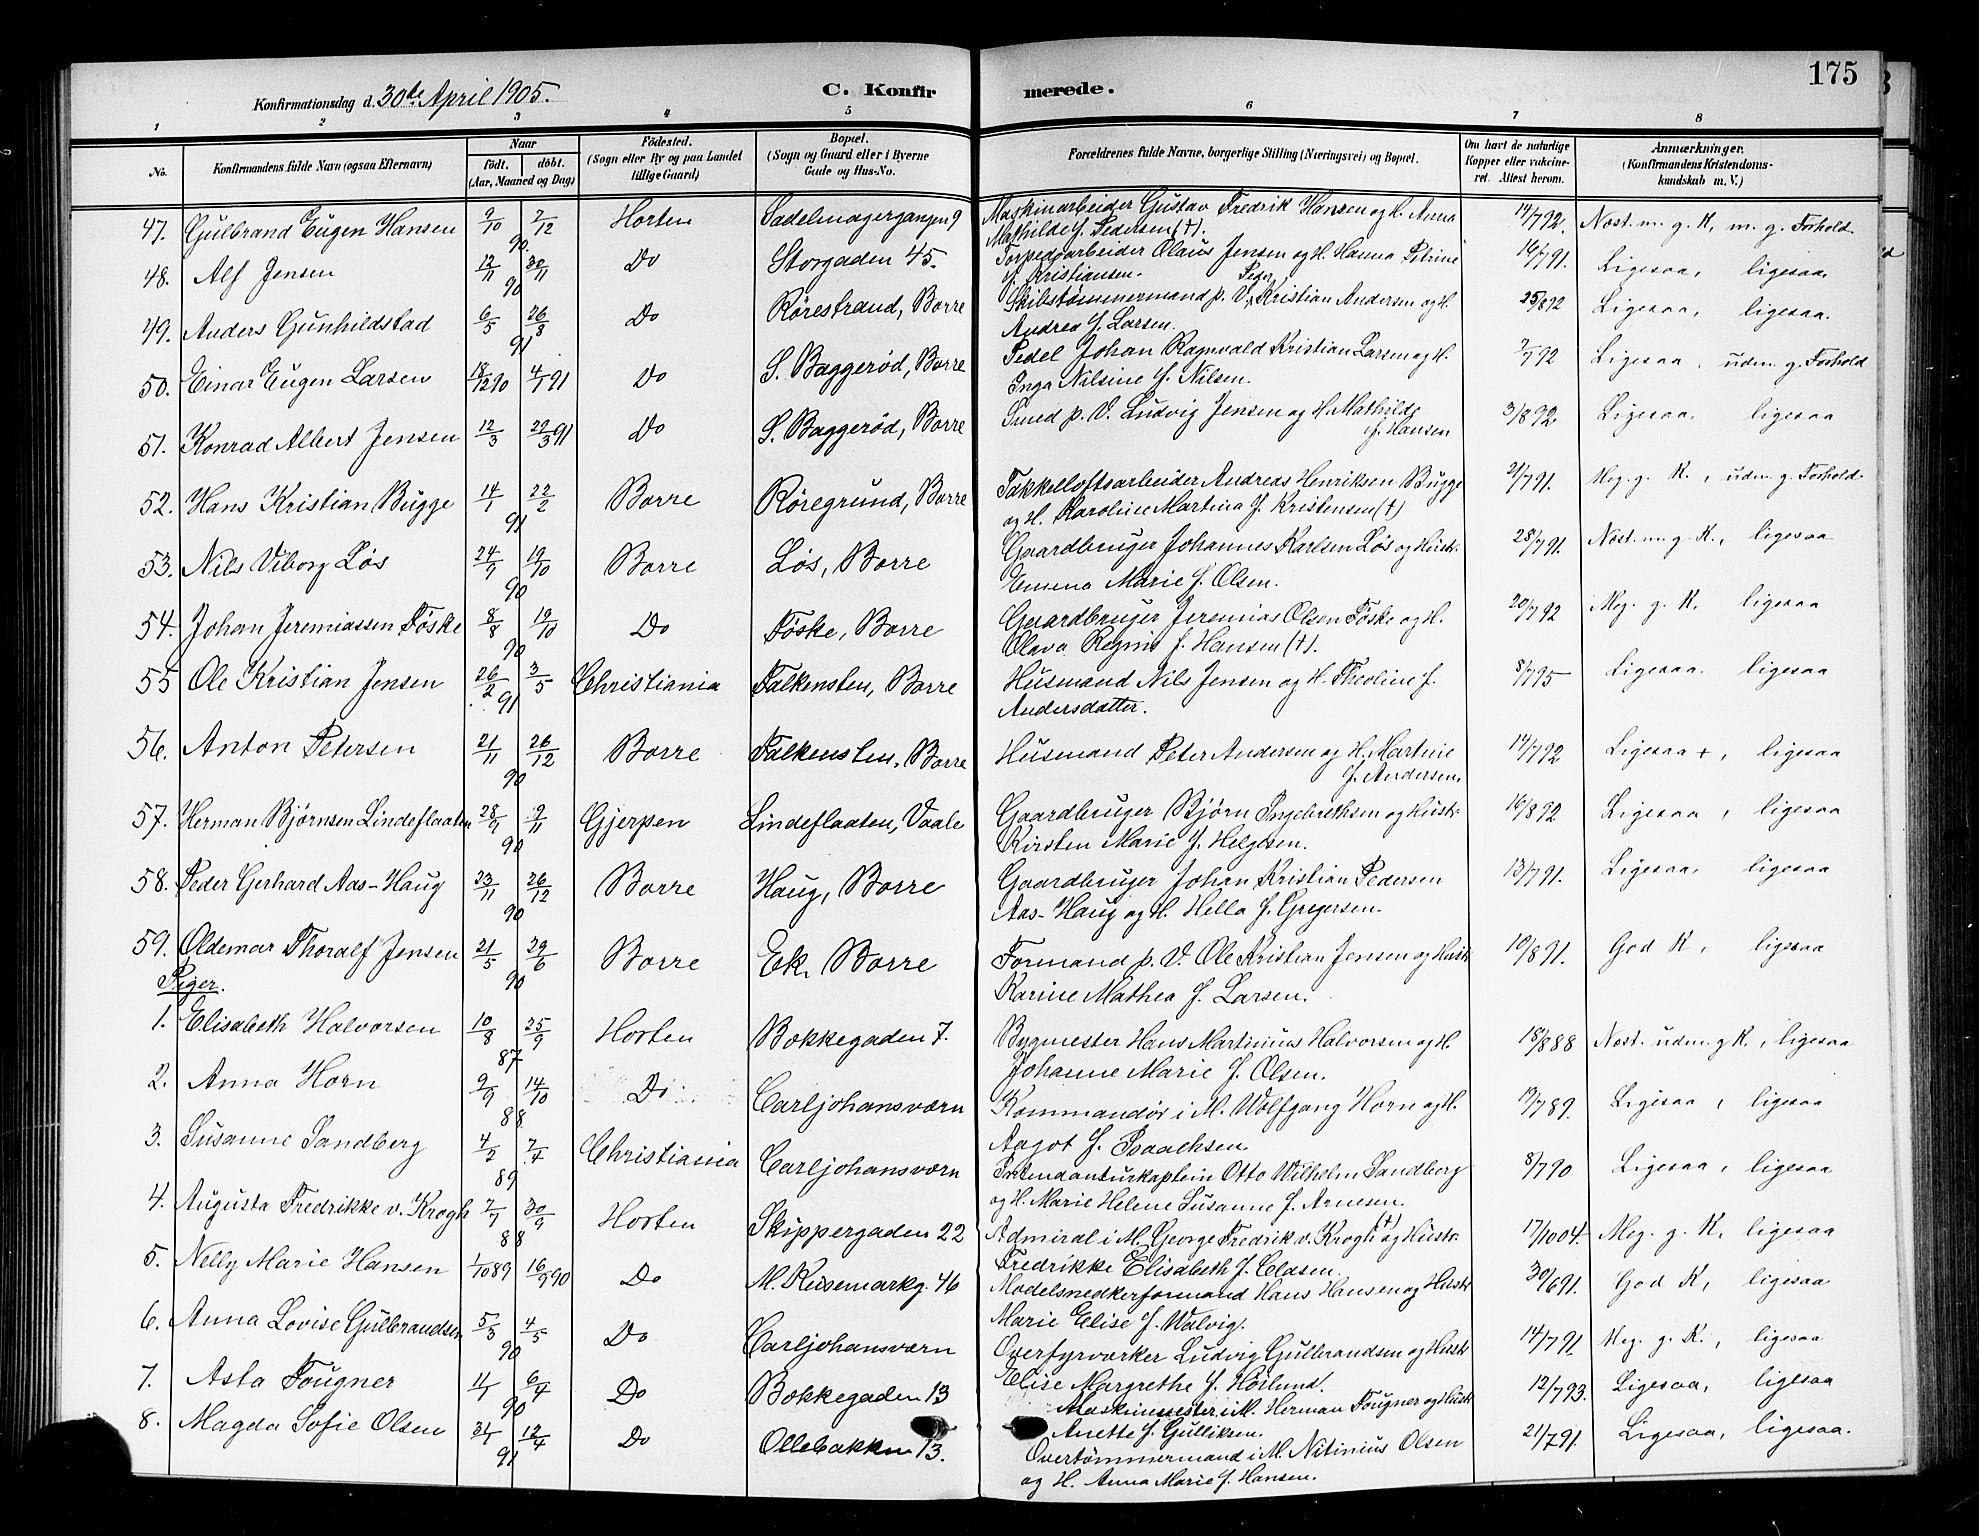 175
Konfirmationsdag d. 30de April 1905.
C. Konfirmerede.
1 2 3 4 5 6 7 8
No. Konfirmandens fulde Navn (ogsaa Efternavn) Naar født. døbt. (Aar, Maaned og Dag) Fødested. (Sogn eller By og paa Landet tillige Gaard) Bopæl. (Sogn og Gaard eller i Byerne Gade og Hus-No. Forældrenes fulde Navne, borgerlige Stilling (Næringsvei) og Bopæl. Om havt de naturlige Kopper eller vakcineret. Attest herom. Anmærkninger. (Konfirmandens Kristendomskundskab m. V.)
47. Gulbrand Eugen Hansen 9/10 2/12 90 Horten Sadelmagergangen 9 Maskinarbeider Gustav Fredrik Hansen og H. Anna
Mathilde f. Pedersen (†). 14/7 92. Næst. m. g. K, m. g. Forhold.
48. Alf Jensen 12/11 30/11 90 Do Storgaden 45. Torpedoarbeider Olaus Jensen og H. Hanna Petrine
f. Kristiansen. 16/7 91. Ligesaa, ligesaa.
49. Anders Gunhildstad 6/5 26/8 91 Do Rørestrand, Borre Skibstømmermand p. V. Peder Kristian Andersen og H.
Andrea f. Larsen. 25/8 92 Ligesaa, ligesaa.
50. Einar Eugen Larsen 18/12 90 4/1 91 Do S. Baggerød, Borre Pedel Johan Ragnvald Kristian Larsen og H.
Inga Nilsine f. Nilsen. 2/7 92 Ligesaa, udm. g. Forhold
51. Konrad Albert Jensen 12/3 29/3 91 Do S. Baggerød, Borre Smed p. V. Ludvig Jensen og H. Mathilde
f. Hansen 3/8 92. Ligesaa. ligesaa
52. Hans Kristian Bugge 14/1 22/2 91 Borre Røregrund, Borre Takkelloftsarbeider Andreas Henriksen Bugge
og H. Karoline Martina f. Kristensen (†) 21/7 91. Meg. g. K., udm. g. Forhold.
53. Nils Viborg Løs 24/7 19/10 90 Borre Løs, Borre Gaardbruger Johannes Karlsen Løs og Hustr.
Emma Marie f. Olsen. 28/7 91. Næst. m. g. K., ligesaa
54. Johan Jeremiassen Føske 8/8 19/10 90 Do Føske, Borre Gaardbruger Jeremias Olsen Føske og H.
Olava Regine f. Hansen (†). 20/7 92 Meg. g. K. ligesaa
55 Ole Kristian Jensen 26/2 3/5 91 Christiania Falkensten, Borre Husmand Nils Jensen og H. Theoline f.
Andersdatter. 8/7 95 Ligesaa. ligesaa
56. Anton Petersen 21/11 26/12 90 Borre Falkensten, Borre Husmand Peter Andersen og H. Martine
f. Andersen. 14/7 92 Ligesaa +, ligesaa
57. Herman Bjørnsen Lindeflaaten 28/9 9/11 90 Gjerpen Lindeflaaten, Vaale Gaardbruger Bjørn Ingebrethsen og Hustr.
Kirsten Marie f. Helgesen. 16/8 92. Ligesaa, ligesaa
58. Peder Gerhard Aas-Haug 23/11 26/12 90 Borre Haug, Borre Gaardbruger Johan Kristian Pedersen
Aas-Haug og H. Hella f. Gregersen. 13/7 91. Ligesaa, ligesaa
59. Oldemar Thoralf Jensen 21/5 29/6 90 Borre Ek, Borre Formand p. V. Ole Kristian Jensen og Hustr.
Karine Mathea f. Larsen. 10/8 91. God K, ligesaa
Piger.
1. Elisabeth Halvorsen 10/8 25/9 87 Horten Bokkegaden 7. Bygmester Hans Martinius Halvorsen og H.
Johanne Marie f. Olsen. 18/8 88 Næst. udm. g K., ligesaa
2. Anna Horn 9/9 14/10 88 Do Carljohansværn Kommandør i M. Wolfgang Horn og H.
Aagot f. Isaachsen 13/7 89. Ligesaa, ligesaa
3. Susanne Sandberg 4/2 7/4 89 Christiania Carljohansværn Intendanturkaptein Otto Wilhelm Sandberg
og H. Marie Helene Susanne f. Arnesen. 8/7 90 Ligesaa, ligesaa
4. Augusta Fredrikke v. Krogh 7/7 30/9 88 Horten Skippergaden 22 Admiral i M. George Fredrik v. Krogh (†) og Hustr.
Fredrikke Elisabeth f. Clasen. 17/10 04. Meg. g. K, ligesaa
5. Nelly Marie Hansen 1/10 89 16/9 90 Do M. Keisemarkg. 46 Modelsnedkerformand Hans Hansen og Hustr.
Marie Elise f. Walvig. 30/6 91. God K, ligesaa
6. Anna Lovise Gulbrandsen 5/3 4/5 90 Do Carljohansværn Overfyrværker Ludvig Gulbrandsen og Hustr.
Elise Margrethe f. Hørlund. 14/7 91 Meg. g. K., ligesaa
7. Asta Fougner 11/1 6/4 90 Do Bokkegaden 13 Maskinmester i M. Herman Fougner og Hustr.
Anette f. Gulliksen. 12/7 93. Ligesaa, ligesaa
8. Magda Sofie Olsen 31/1 12/4 91 Do Ollebakken 13. Overtømmermand i M. Nitinius Olsen
og H. Anna Marie f. Hansen. 21/7 91. Ligesaa, ligesaa.